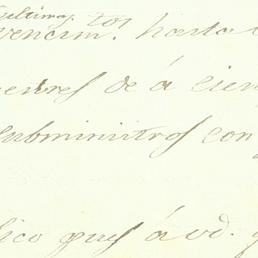 ultimo. tos
vencim. hasta
eses de á cien
subministros con
lico pues á vd. q